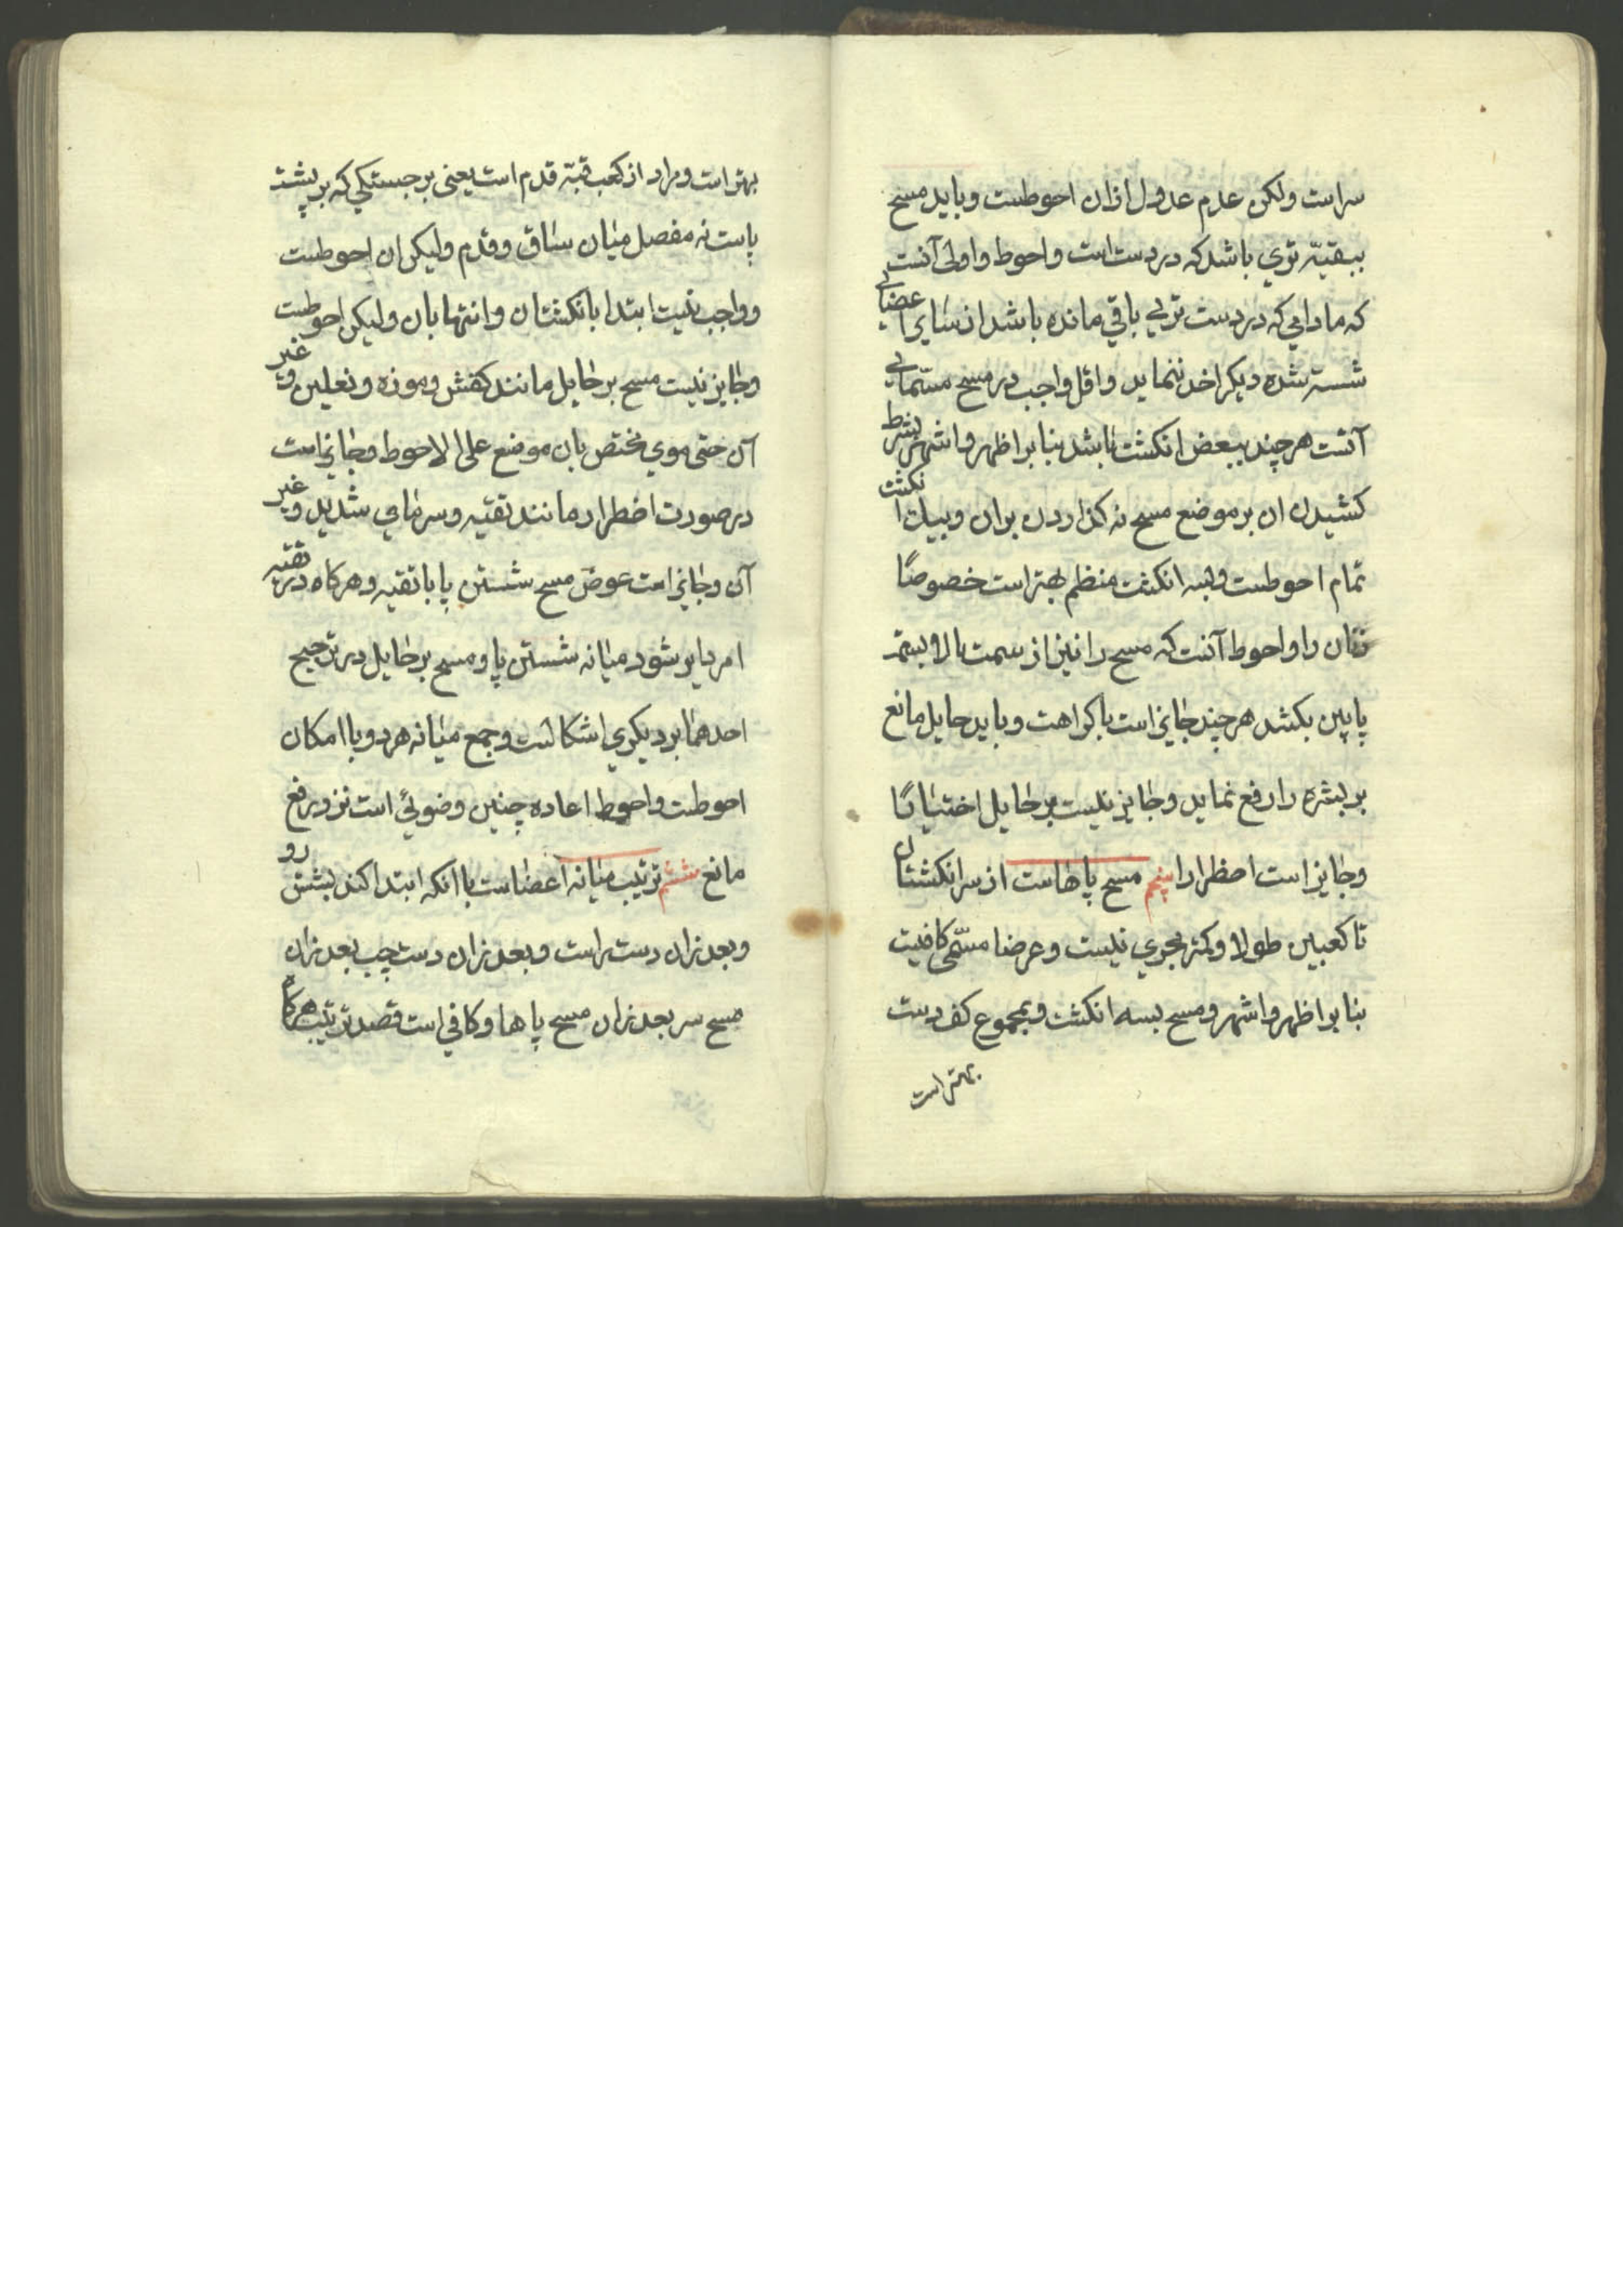 سراست ولکن عدم عدول ازان احوطست وباید مسح
ببقیّه تري باشد که در دست است واحوط واولی آنست
که مادامی که در دست تري باقي مانده باشد از سایر اعضای
شسته شده دیکر اخذ ننماید واقل واجب در مسح مسّمای
آنست هر چند ببعض انکشت باشد بنا بر اظهر واشهر بشرط
کشیدن ان بر موضع مسح نه کذاردن بران وبیك انکشت
تمام احوطست وبسه انکشت منظم بهتر است خصوصًا
زنان را واحوط آنست که مسح را نیز از سمت بالا بسمت
پایین بکشد هر چند جایز است باکراهت وباید حایل مانع
بر بشره را رفع نماید وجایز نیست بر حایل اختیارًا
وجایز است اضطرارا پنجم مسح پاهاست از سر انکشتان
تا کعبین طولا وکمتر مجزي نیست وعرضا مسّمی کافیست
بنا بر اظهر واشهر ومسح بسه انکشت وبمجموع کف دست
بهتر است
بهتر است ومراد از کعب قبّه قدم است یعنی برجستکي که بر پشت
پاست نه مفصل میان ساق وقدم ولیکن ان احوطست
وواجب نیست ابتدا بانکشتان وانتها بان ولیکن احوطست
وجایز نیست مسح بر حایل مانند کفش وموزه ونعلین وغیر
آن حتی موي مختص بان موضع علی الاحوط وجایز است
در صورت اضطرار مانند تقیه وسرمای شدید وغیر
آن وجایز است عوض مسح شستن پا با تقیه وهرکاه در تقیه
امر دایر شود میانه شستن پا ومسح بر حایل در ترجیح
احدهما بر دیکري اشکالست وجمع میانه هر دو با امکان
احوطست واحوط اعاده چنین وضوئي است نزد رفع
مانع ششم ترتیب میانه اعضاست با انکه ابتدا کند بشستن رو
وبعد ازان دست راست وبعد ازان دست چپ بعد ازان
مسح سر بعد ازان مسح پاها وکافي است قصد ترتیب هرکاه